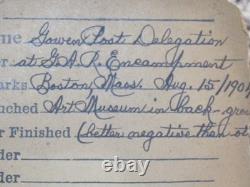 me Gowen Post Delegation
or at G.A.R. Encampment
arks Boston, Mass. Aug. 15/1904
uched Art Museum in back-grou
r Finished (better negative than ot
der
der
© 122